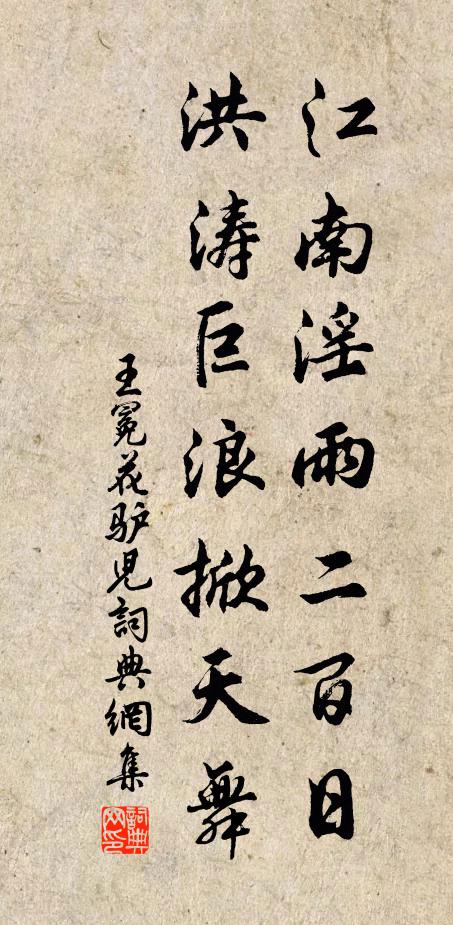 江南淫雨二百日
洪涛巨浪掀天舞
王冕花驴児詞典網集
詞典网印